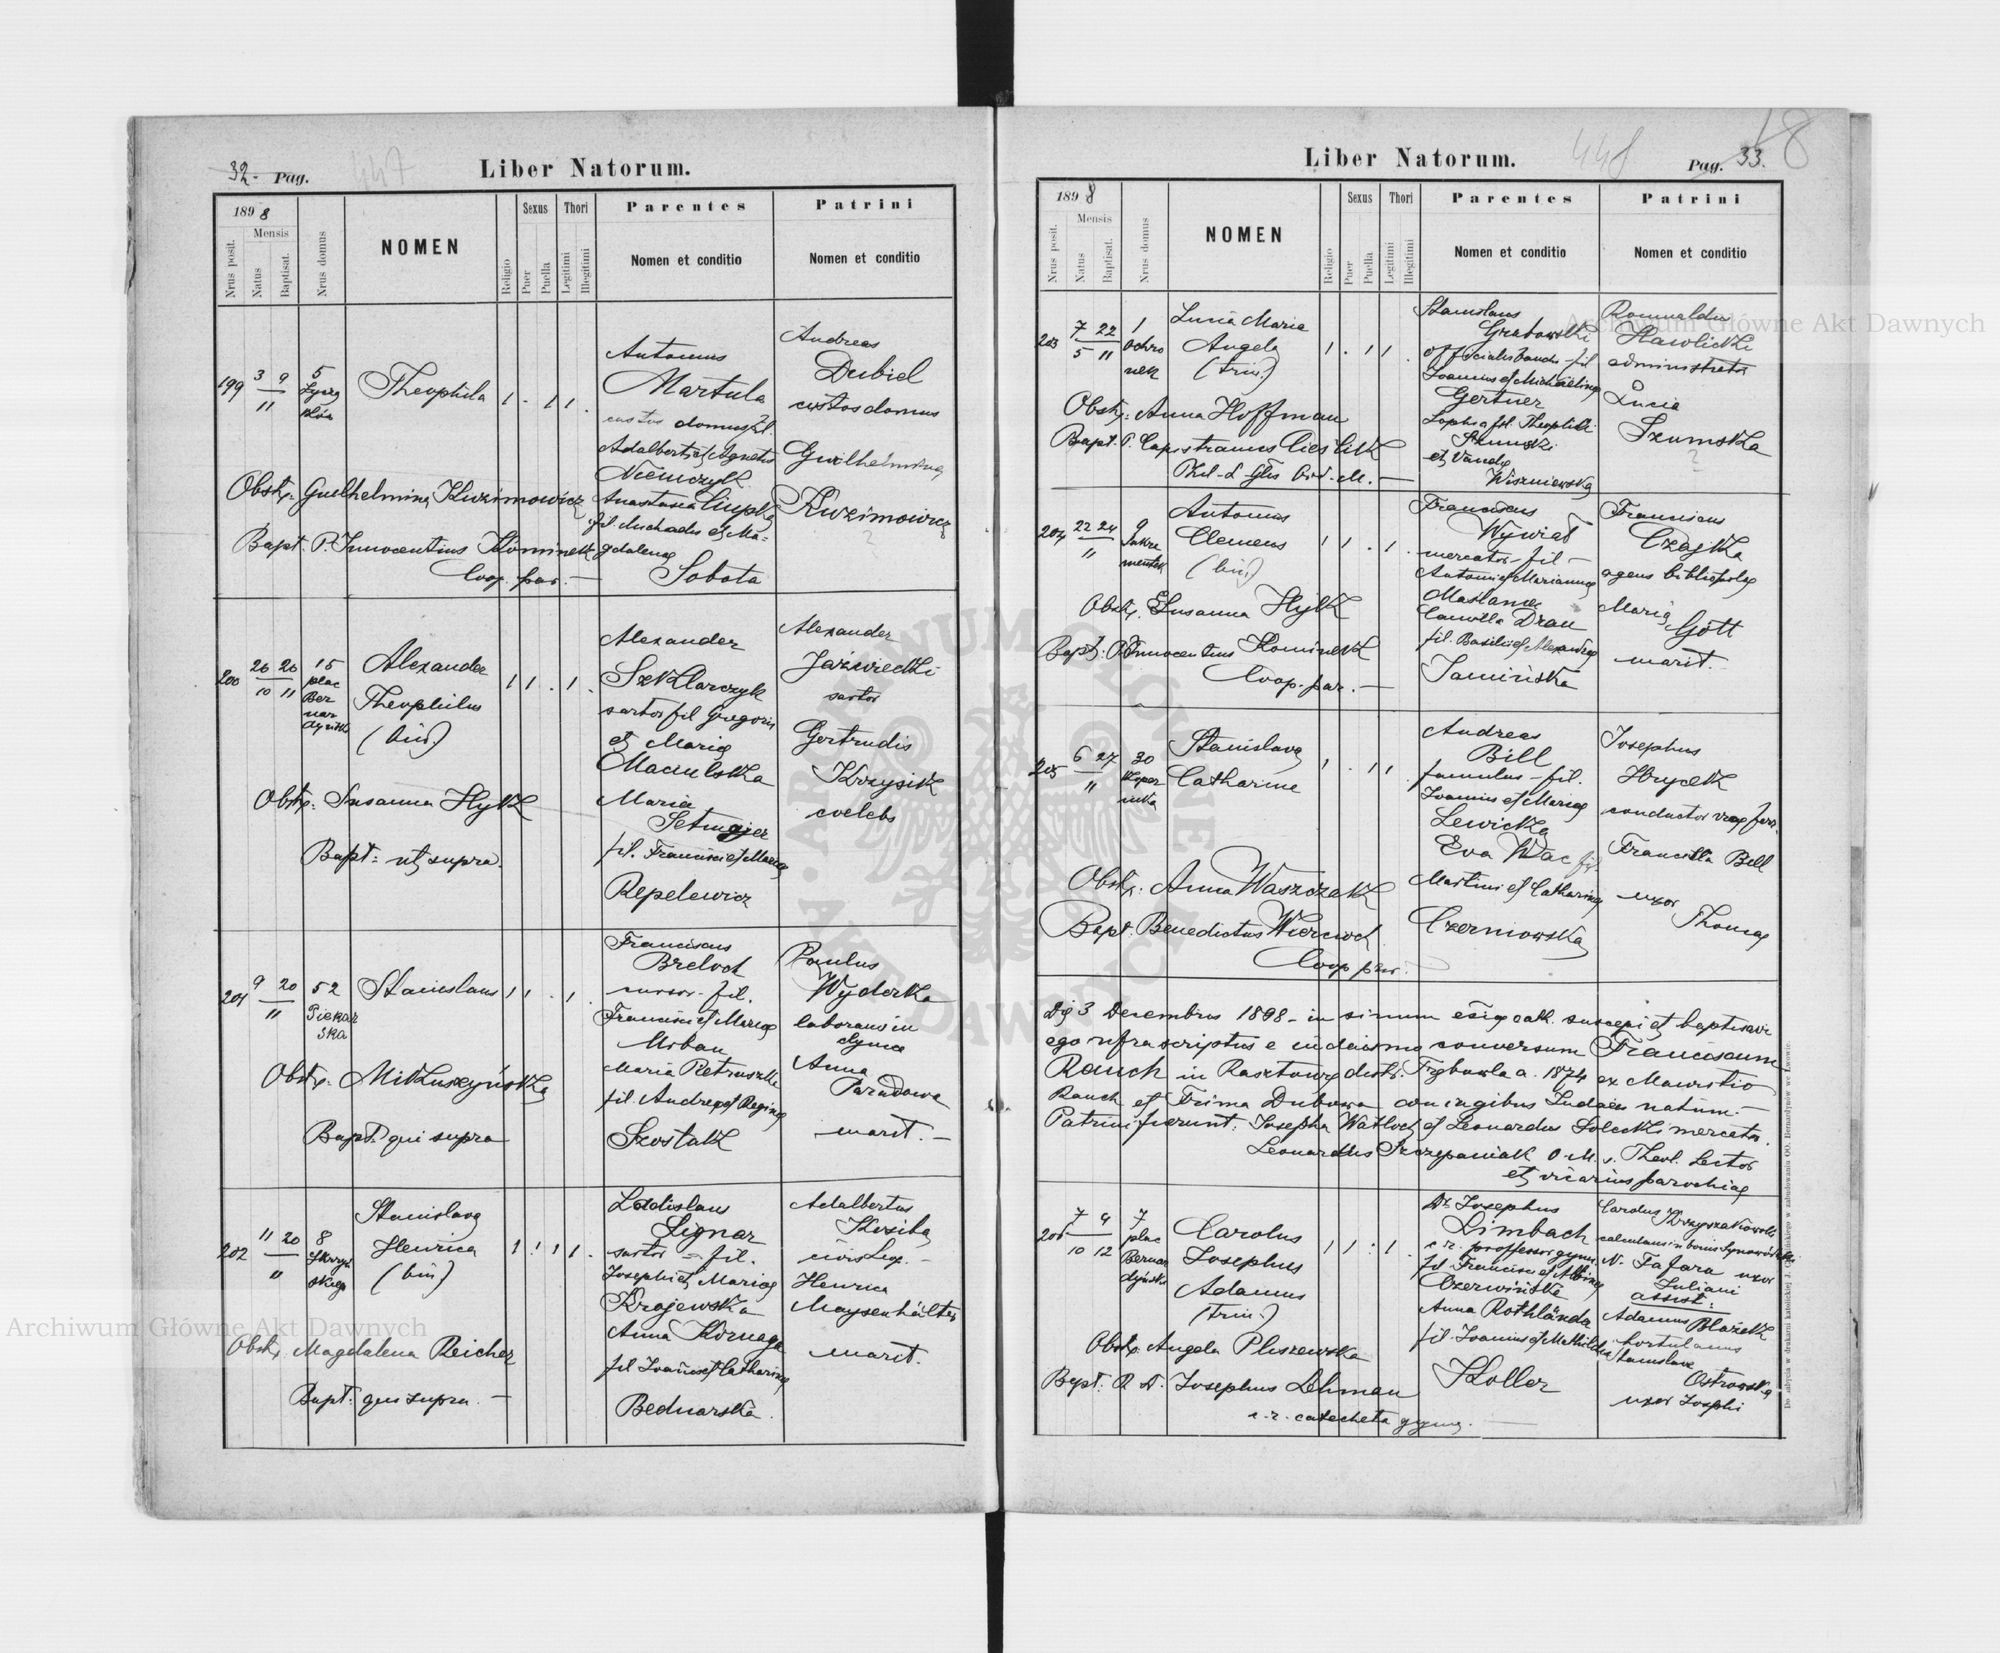 32. Pag.
447
Liber Natorum.
1898
Mensis
Nrus posit.
Natus
Baptisat.
Nrus domus
NOMEN
Religio
Sexus
Puer
Puella
Thori
Legitimi
Illegitimi
Parentes
Nomen et conditio
Patrini
Nomen et conditio
199
3 9
11
5
Theophila
Antonius
Martula
custos domus fil.
Adalberti et Agnetis
Niemczyk
Anastasia Ciupka
fil. Michaelis et Ma-
gdalenae
Sobota
Andreas
Dubiel
custos domus
Guilhelmina
Kuzimowicz
?
Obstx: Guilhelmina Kuzimowicz
Bapt. P. Innocentius Kominek
Coop. par. —
200
26 20
10 11
15
plac
Ber
nar
dyński
Alexander
Theophilus
(bin.)
Alexander
Szklarczyk
sartor fil Gregorii
et Maria
Maciulska
Maria
Setmajer
fil. Francisci et Mariae
Repelewicz
Alexander
Jaźwiecki
sartor
Gertrudis
Krzysik
coelebs
Obstx: Susanna Hylk
Bapt: ut supra.
201
9 20
11
52
Piekar
ska
Stanislaus
Franciscus
Breloch
cursor fil.
Francisci et Mariae
Urban
Maria Pietruszka
fil. Andreae et Reginae
Szostak
Paulus
Wyderka
laborans in
Anna
Paradowa
marit. —
Obstx: Mikluszyńska
Bapt: qui supra
202
11 20
11
8
Stanislava
Henrica
(bin)
Ladislaus
Lignar
sartor - fil.
Josephi et Mariae
Krajewska
Anna Kornaga
fil Joannis et Catharinae
Bednarska.
Adalbertus
Koziba
civis Leop. —
Henrica
Maysenhälter
marit.
Obstx. Magdalena Reicher
Bapt: qui supra —
Liber Natorum.
448
Pag. 33.
18
1898
Mensis
Nrus posit.
Natus
Baptisat.
Nrus domus
NOMEN
Religio
Sexus
Puer
Puella
Thori
Legitimi
Illegitimi
Parentes
Nomen et conditio
Patrini
Nomen et conditio
203
7 22
5 11
1
Ochro
nek
Lucia Maria
Angela
(trin.)
Stanislaus
Grabowski
officialis banci - fil
Joannis et Michaelina
Gertner
Sophia fil. Theophili
Szumski
et Vanda
Wiszniewska
Romualdus
Hawlicki
administrator
Lucia
Szumska
?
Obstx: Anna Hoffman
Bapt. P. Capistranus Cieślik
204
22 24
11
9
Sakra
mentek
Antonius
Clemens
(bin.)
Franciscus
Wywiał
mercator - fil -
Antonii et Mariannae
Maślanka
Camilla Drau
fil. Basilii et Alexandrae
Samińska
Franciscus
Czajka
agens bibliopolae
Maria
Gött
marit.
Obstx. Susanna Hylk
Bapt: P. Innocentius Kominek
Coop. par. —
205
6 27
11
30
Koper
nika
Stanislava
Catharina
Andreas
Bill
famulus - fil.
Joannis et Mariae
Lewicka
Eva Wac fil.
Martini et Catharinae
Czerniowska
Josephus
Hrycek
conductor viae ferr.
Francisca Bill
uxor
Thomae
Obstx: Anna Waszczak
Bapt. Benedictus Wiercioch
Coop par. —
Die 3 Decembris 1898 - in sinum eccae cath. suscepi et baptisavi
ego infrascriptus e iudaismo conversum Franciscum
Rauch in Rasztowce distr. Trębowla a. 1874 ex Mauritio
Rauch et Frima Dubowa coniugibus Iudaeis natum. —
Patrini fuerunt: Josepha Watloch et Leonardus Solecki mercator.
Leonardus Szczepaniak O. M. s. Theol. Lector
et vicarius parochiae
206
7 4
10 12
7
plac
Bernar
dyński
Carolus
Josephus
Adamus
(trin.)
Dr Josephus
Limbach
c. r. professor gymn.
fil Francisci et Albinae
Czerwińska
Anna Rothländer
fil. Joannis et Mathildis
Koller
Carolus Krzyszkowski
N. Fafara uxor
Juliani
assist:
Adamus Blażek
hortulanus
Stanislava
Ostrowska
uxor Josephi
Obstx. Angela Pliszewska
Bapt: P. D. Josephus Lehman
c. r. catecheta gymn. —
Archiwum Główne Akt Dawnych
Archiwum Główne Akt Dawnych
ARCHIWUM GŁÓWNE AKT DAWNYCH